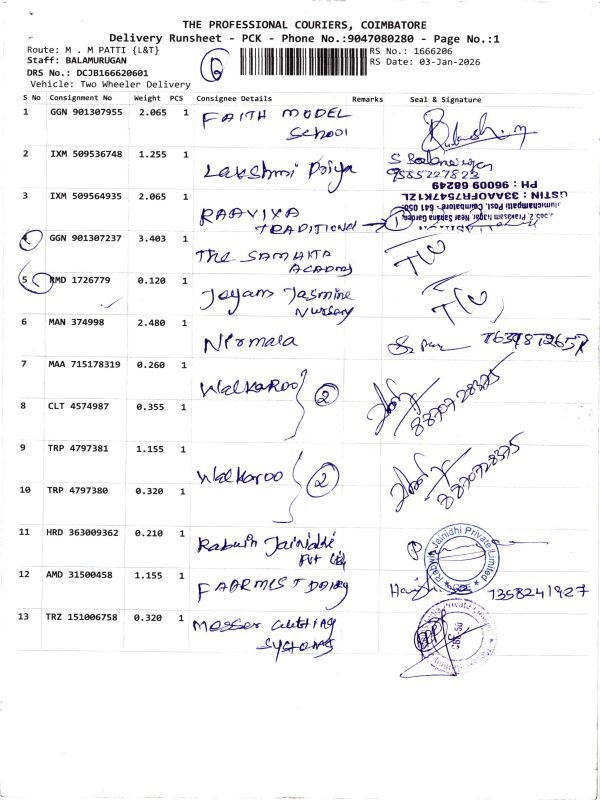 THE PROFESSIONAL COURIERS, COIMBATORE
Delivery Runsheet - PCK - Phone No.:9047080280 - Page No.:1
Route: M . M PATTI {L&T}
RS No.: 1666206
Staff: BALAMURUGAN
RS Date: 03-Jan-2026
DRS No.: DCJB166620601
Vehicle: Two Wheeler Delivery
S No Consignment No Weight PCS Consignee Details Remarks Seal & Signature
1 GGN 901307955 2.065 1 FAITH MODEL
School
2 IXM 509536748 1.255 1 Lakshmi Priya
3 IXM 509564935 2.065 1 RAAVIYA
TRADITIONAL 1
PH : 96009 68249
GSTIN : 33AAOFR7547K1ZL
4 GGN 901307237 3.403 1 THE SAMHITA
ACADAMY
5 RMD 1726779 0.120 1 Jeyam Jasmine
Nursery
6 MAN 374998 2.480 1 Nirmala
7 MAA 715178319 0.260 1 WALKAROO 2
8870728375
8 CLT 4574987 0.355 1
9 TRP 4797381 1.155 1 WALKAROO 2
8870728375
10 TRP 4797380 0.320 1
11 HRD 363009362 0.210 1 Jainidhi
Pvt Ltd
Jainidhi Private Limited
12 AMD 31500458 1.155 1
1358241927
13 TRZ 151006758 0.320 1 Messer Cutting
Systems